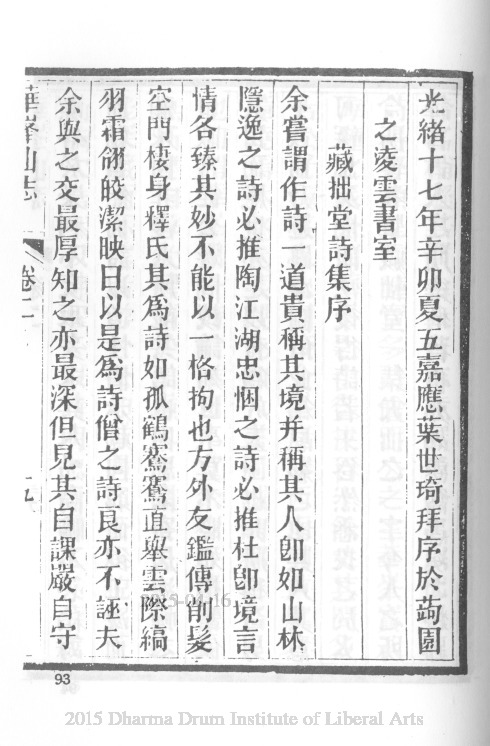 光緒十七年辛卯夏五嘉應葉世琦拜序於蒟園
之凌雲書室
藏拙堂詩集序
余嘗謂作詩一道貴稱其境并稱其人卽如山林
隱逸之詩必推陶江湖忠悃之詩必推杜卽境言
情各臻其妙不能以一格拘也方外友鑑傳削髮
空門棲身釋氏其爲詩如孤鶴鶱鶱直舉雲際縞
羽霜翎皎潔映日以是爲詩僧之詩良亦不誣夫
余與之交最厚知之亦最深但見其自課嚴自守
華峯山志
卷二
九
93
2015 Dharma Drum Institute of Liberal Arts